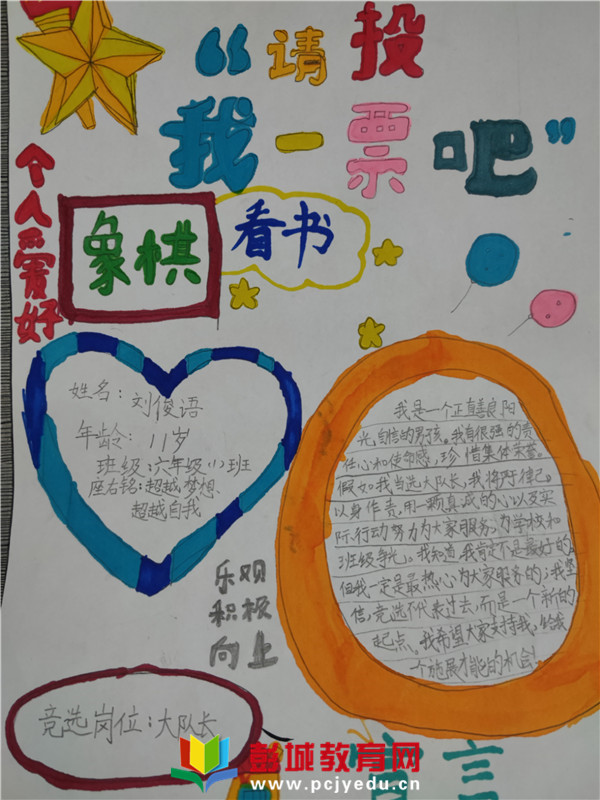 “请投
我一票吧”
个人爱好
象棋
看书
姓名：刘俊语
年龄：11岁
班级：六年级(1)班
座右铭：超越梦想、
超越自我
我是一个正直善良阳
光,自信的男孩。我有很强的责
任心和使命感，珍惜集体荣誉。
假如我当选大队长,我将严于律己。
以身作责,用一颗真诚的心以及实
际行动努力为大家服务,为学校和
班级争光。我知道,我肯定不是最好的,
但我一定是最热心为大家服务的；我坚
信,竞选不代表过去,而是一个新的
起点。我希望大家支持我,给我
个施展才能的机会!
乐观
积极
向上
竞选岗位：大队长
宣言
彭城教育网
www.pcjyedu.cn